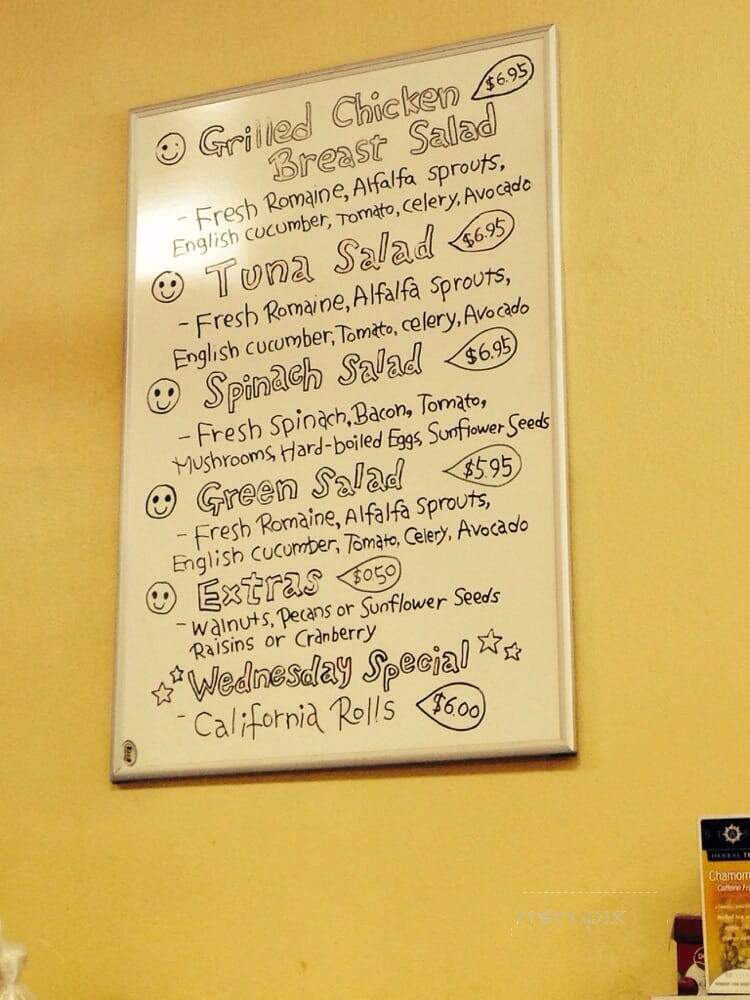 Grilled Chicken $6.95
Breast Salad
- Fresh Romaine, Alfalfa sprouts,
English cucumber, Tomato, celery, Avocado
Tuna Salad $6.95
- Fresh Romaine, Alfalfa Sprouts,
English cucumber, Tomato, celery, Avocado
Spinach Salad $6.95
- Fresh Spinach, Bacon, Tomato,
Mushrooms, Hard-boiled Eggs, Sunflower Seeds
Green Salad $5.95
- Fresh Romaine, Alfalfa Sprouts,
English cucumber, Tomato, Celery, Avocado
Extras $0.50
- Walnuts, Pecans or Sunflower Seeds
Raisins or Cranberry
Wednesday Special
- California Rolls $6.00
menupix
HERBAL
Chamom
Caffeine Fr